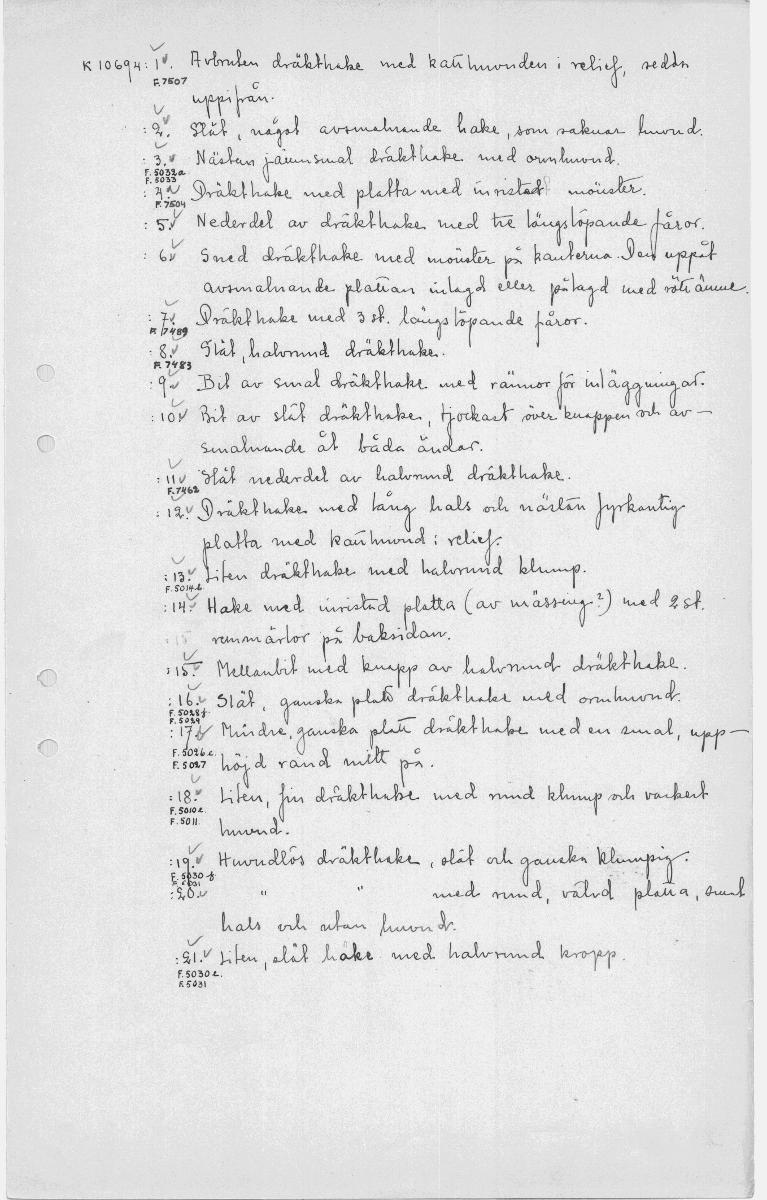 K 10694: 1. Avbruten dräkthake med katthuvuden i relief, sedda
F.7507
uppifrån.
: 2. Slät, något avsmalnande hake, som saknar huvud.
: 3. Nästan jämnsmal dräkthake med ormhuvud.
F.5032a
F.5033
: 4. Dräkthake med platta med inristadt mönster.
F.7504
: 5. Nederdel av dräkthake med tre längslöpande fåror.
: 6. Sned dräkthake med mönster på kanterna. Den uppåt
avsmalnande plattan inlagd eller pålagd med rött ämne.
: 7. Dräkthake med 3 st. längslöpande fåror.
F.7489
: 8. Slät, halvrund dräkthake.
F.7483
: 9. Bit av smal dräkthake med rännor för inläggningar.
: 10. Bit av slät dräkthake, tjockast över knappen och av-
smalnande åt båda ändar.
: 11. Slät nederdel av halvrund dräkthake.
F.7462
: 12. Dräkthake med lång hals och nästan fyrkantig
platta med katthuvud i relief.
: 13. Liten dräkthake med halvrund klump.
F.5014b
: 14. Hake med inristad platta (av mässing?) med 2 st.
15 remmärlor på baksidan.
: 15. Mellanbit med knapp av halvrund dräkthake.
: 16. Slät, ganska platt dräkthake med ormhuvud.
F.5028f
F.5029
: 17. Mindre, ganska platt dräkthake med en smal, upp-
F.5026c.
F.5027 höjd rand mitt på.
: 18. Liten, fin dräkthake med rund klump och vackert
F.5010c.
F.5011. huvud.
: 19. Huvudlös dräkthake, slät och ganska klumpig.
F.5030f
F.5031
: 20. " " med rund, välvd platta, smal
hals och utan huvud.
: 21. Liten, slät hake med halvrund kropp.
F.5030c.
F.5031